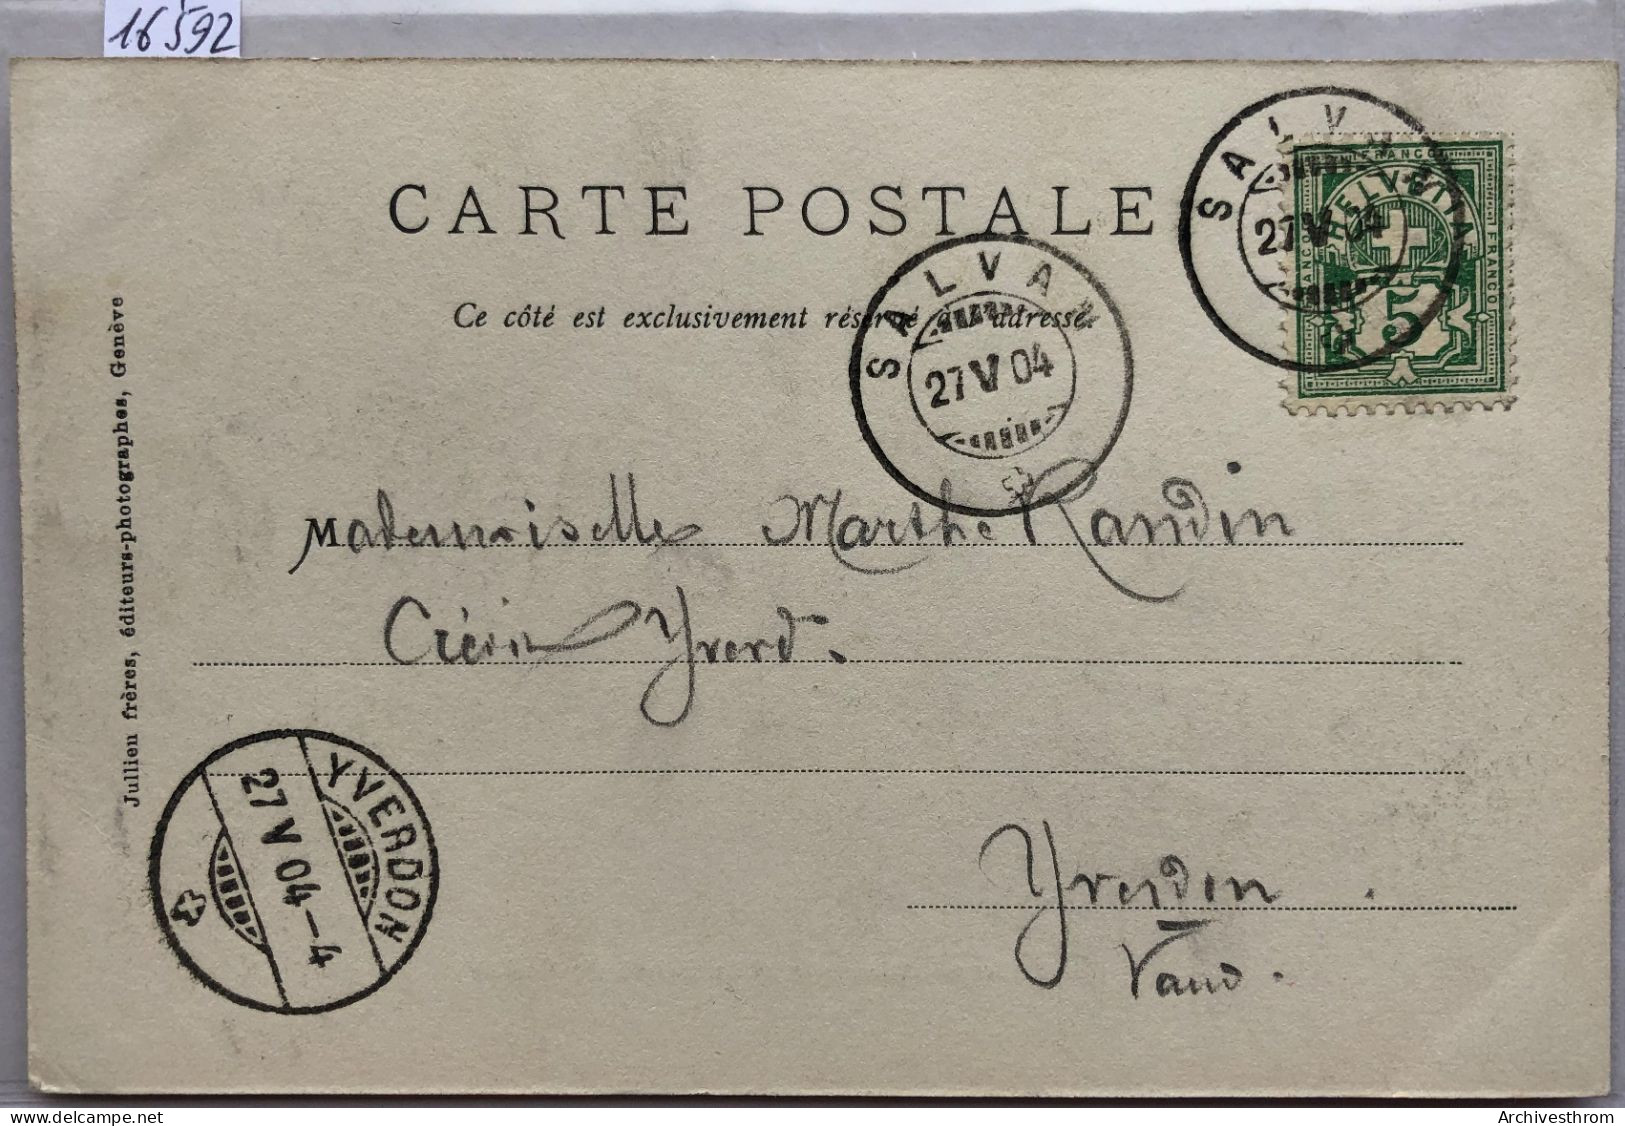 16592
CARTE POSTALE
Ce côté est exclusivement réservé à l'adresse.
SALVAN
27 V 04
SALVAN
27 V 04
FRANCO
HELVETIA
FRANCO
FRANCO
5
Jullien frères, éditeurs-photographes, Genève
Mademoiselle Marthe Randin
Yverd.
YVERDON
27 V 04-4
Yverdon.
Vaud.
www.delcampe.net
Archivesthrom